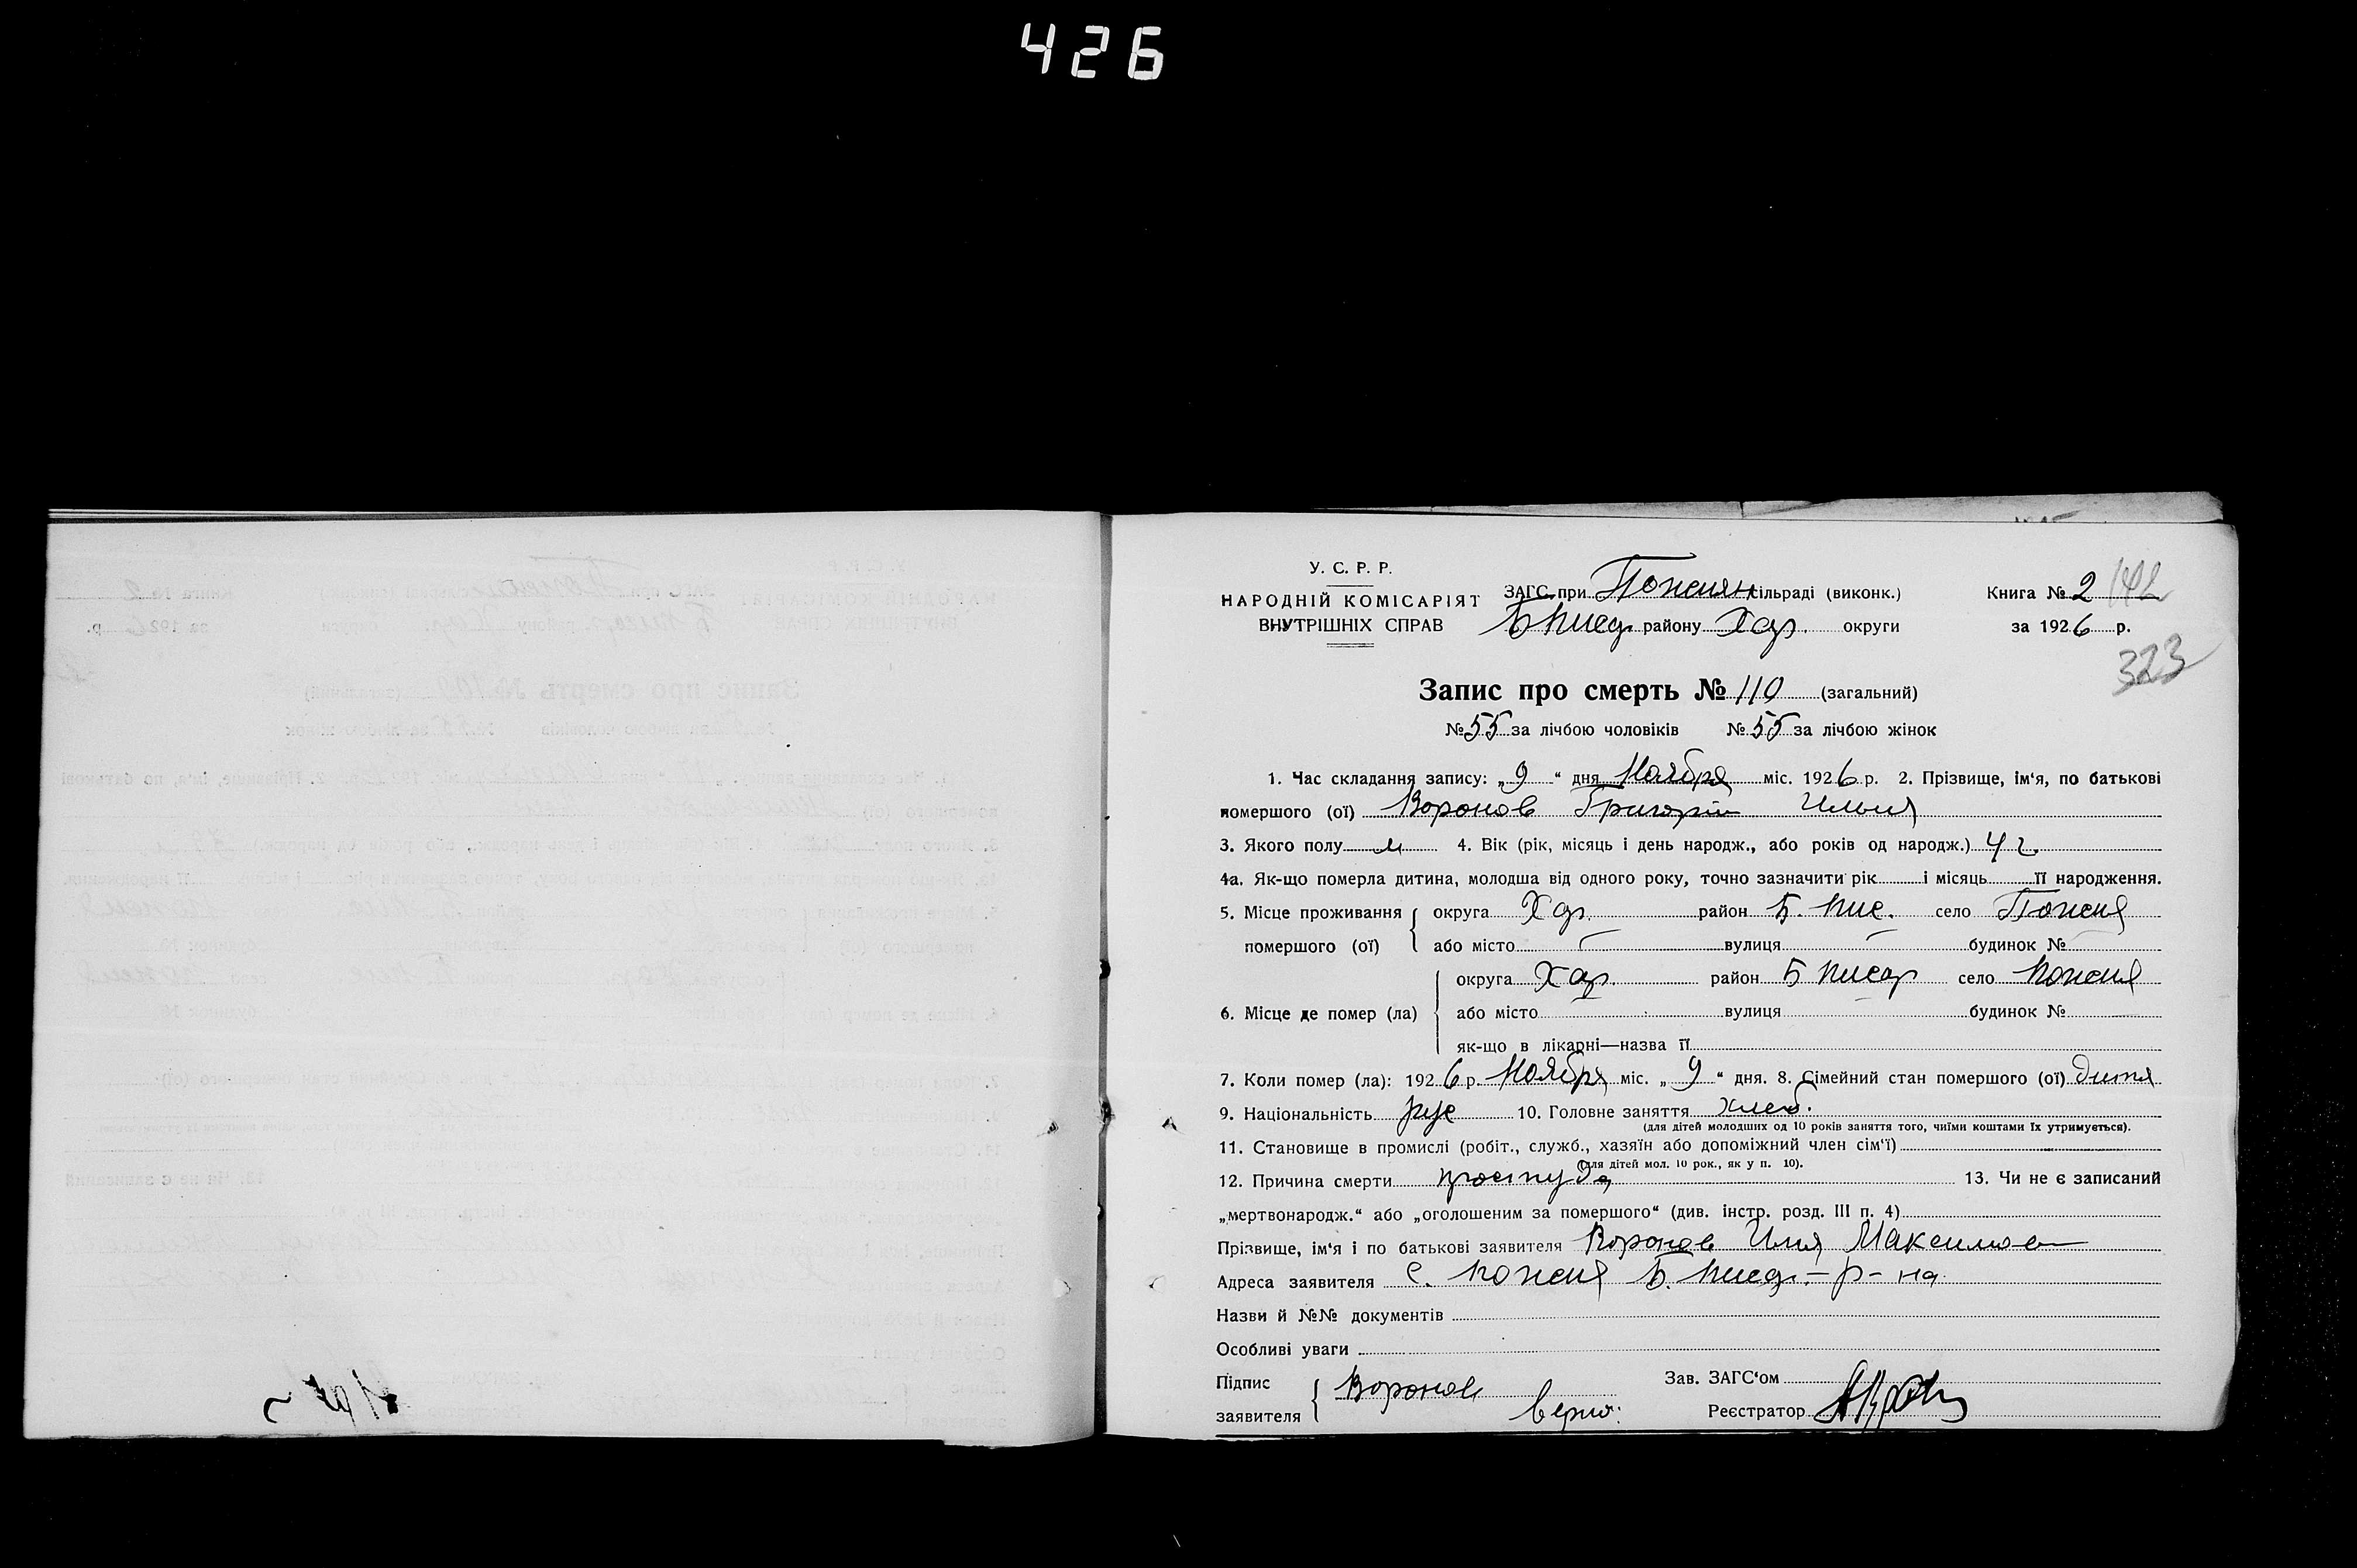 426
У. С. Р. Р.
НАРОДНІЙ КОМІСАРІЯТ
ВНУТРІШНІХ СПРАВ
ЗАГС при Пожнян сільраді (виконк.)
Б Писар району Хар. округи
Книга № 2 142
за 1926 р.
323
Запис про смерть № 110 (загальний)
№ 55 за лічбою чоловіків № 55 за лічбою жінок
1. Час складання запису: „9“ дня Ноября міс. 1926 р. 2. Прізвище, ім‘я, по батькові
помершого (ої) Воронов Григорій Ильия
3. Якого полу м 4. Вік (рік, місяць і день народж., або років од народж.) 4 г.
4а. Як-що померла дитина, молодша від одного року, точно зазначити рік і місяць її народження.
5. Місце проживання помершого (ої) округа Хар. район Б. Пис. село Пожня
або місто вулиця будинок №
6. Місце де помер (ла) округа Хар. район Б Писар село Пожня
або місто вулиця будинок №
як-що в лікарні—назва її
7. Коли помер (ла): 1926 р. Ноября міс. „9“ дня. 8. Сімейний стан помершого (ої) дитя
9. Національність рус 10. Головне заняття хлеб.
(для дітей молодших од 10 років заняття того, чиїми коштами їх утримується).
11. Становище в промислі (робіт., служб., хазяїн або допоміжний член сім‘ї)
(для дітей мол. 10 рок., як у п. 10).
12. Причина смерти простуда 13. Чи не є записаний
„мертвонародж.“ або „оголошеним за помершого“ (див. інстр. розд. III п. 4)
Прізвище, ім‘я і по батькові заявителя Воронов Илия Максимов
Адреса заявителя с. Пожня Б. Писар.-р-на
Назви й №№ документів
Особливі уваги
Підпис заявителя Воронов
верно:
Зав. ЗАГС‘ом
Реєстратор